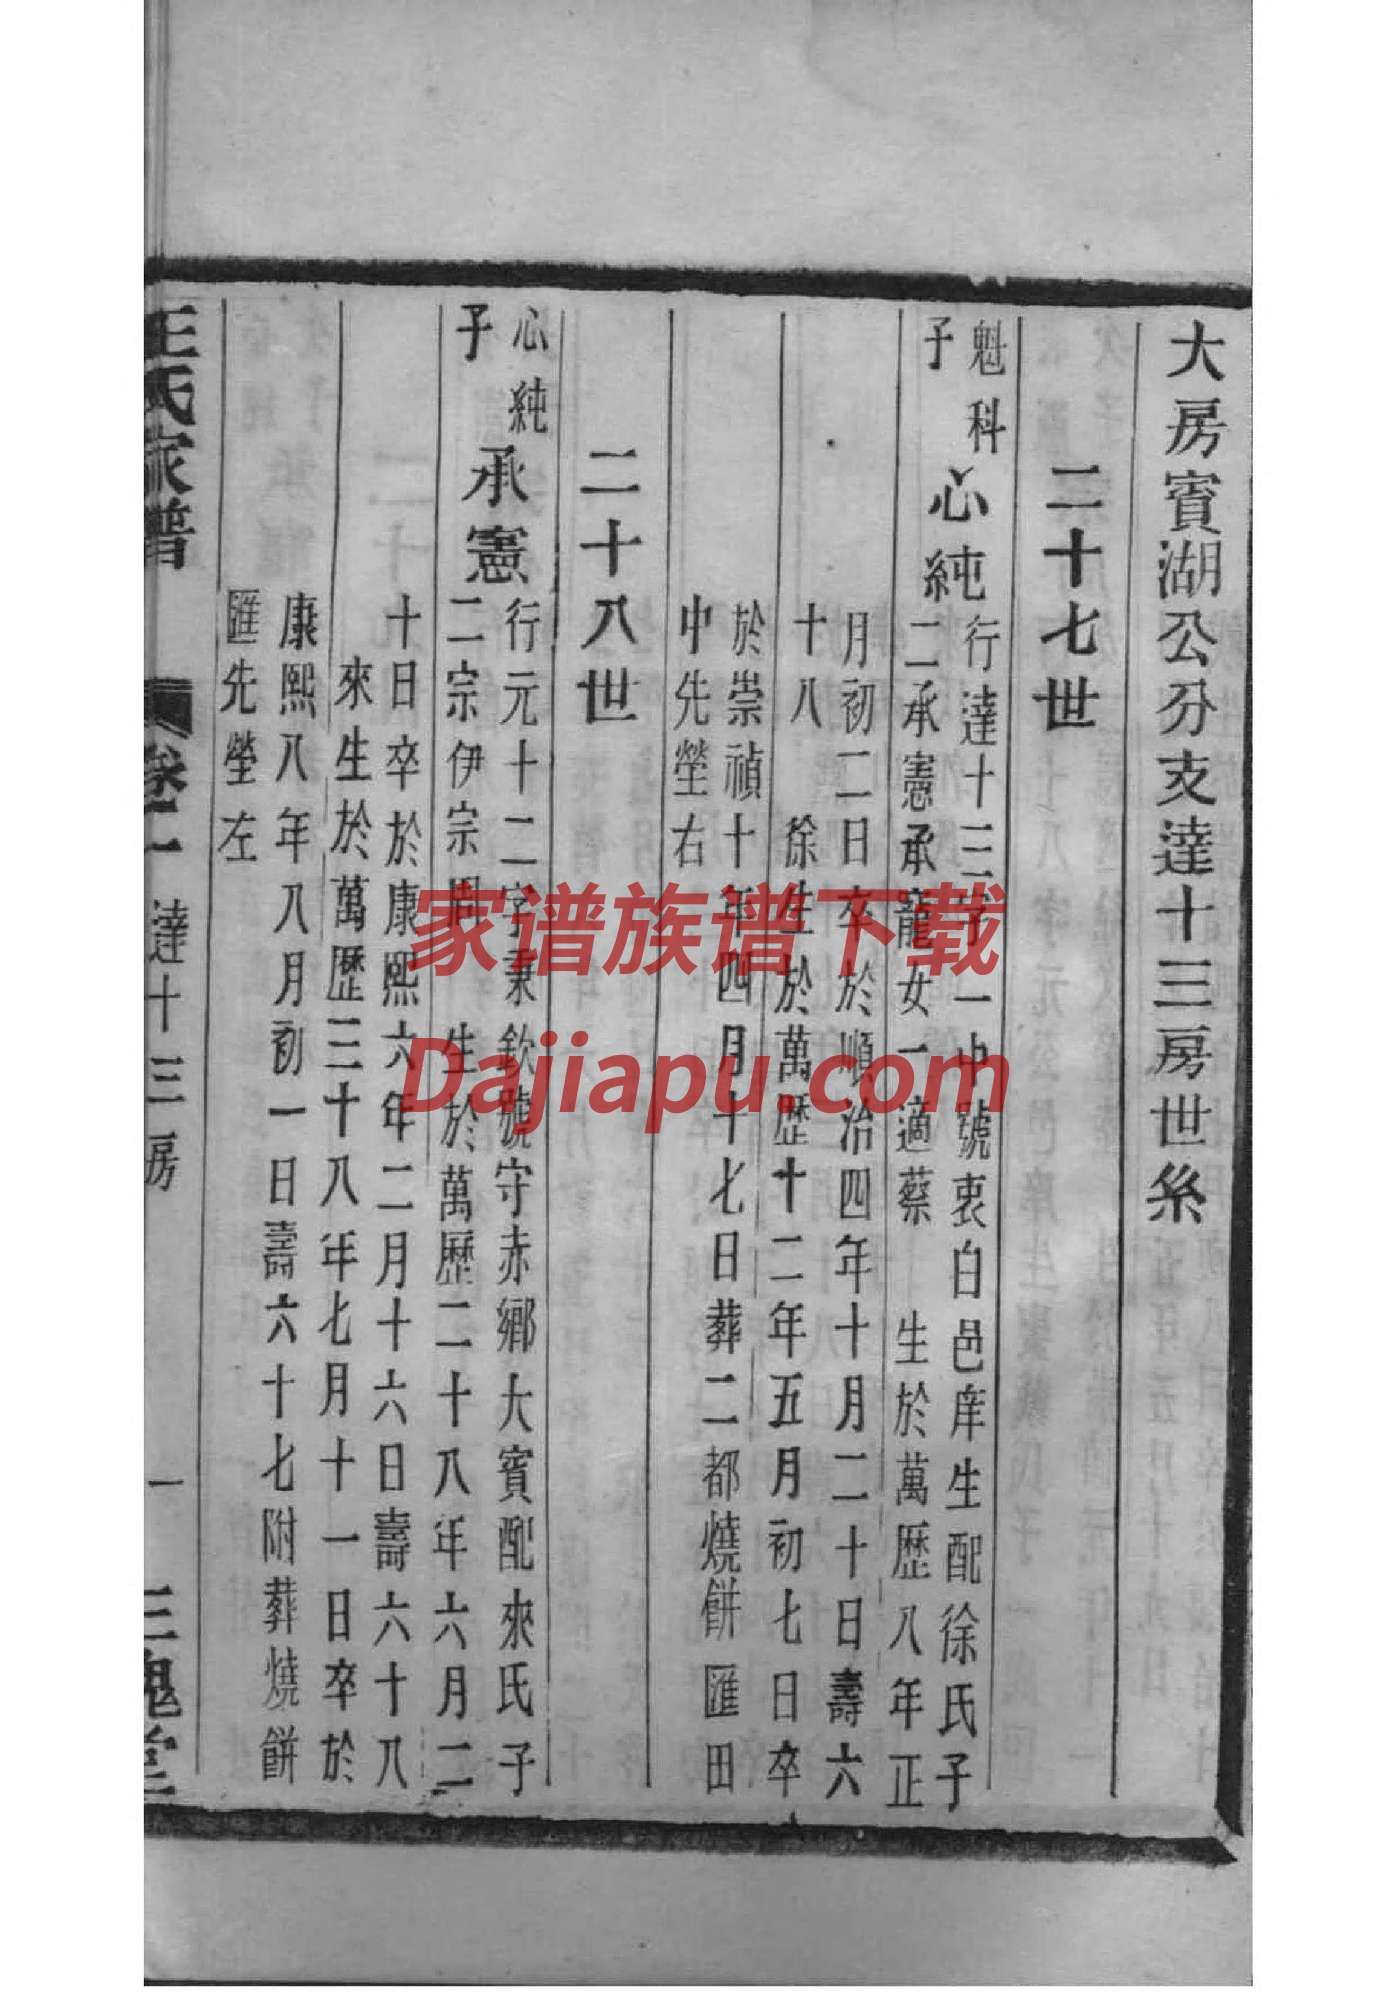 大房賓湖公分支達十三房世系
二十七世
魁科子
心純
行達十三字一中號衷白邑庠生配徐氏子
二承憲承寵女一適蔡 生於萬歷八年正
月初二日卒於順治四年十月二十日壽六
十八 徐生於萬歷十二年五月初七日卒
於崇禎十年四月十七日葬二都燒餅匯田
中先塋右
二十八世
心純子
承憲
行元十二字秉欽號守赤鄉大賓配來氏子
二宗伊宗周 生於萬歷二十八年六月二
十日卒於康熙六年二月十六日壽六十八
來生於萬歷三十八年七月十一日卒於
康熙八年八月初一日壽六十七附葬燒餅
匯先塋左
王氏家譜
卷二 達十三房
一
三槐堂
家谱族谱下载
Dajiapu.com